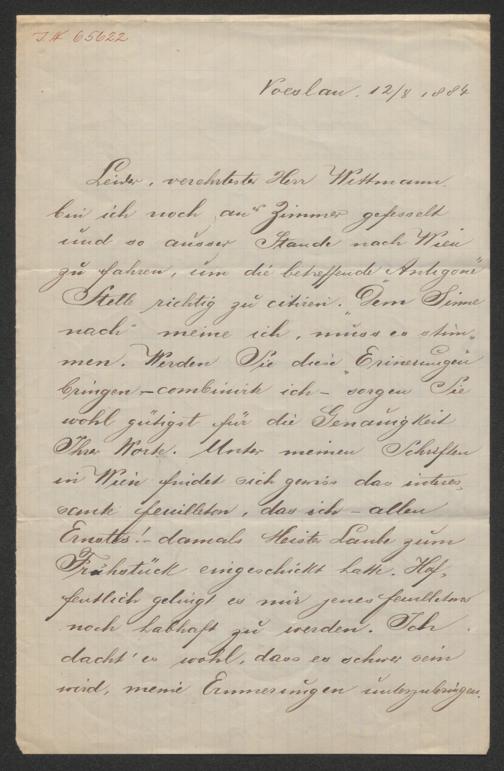 I.N 65622
Voeslau. 12/8 1884
Leider, verehrtester Herr Wittmann
bin ich noch an's Zimmer gefesselt
und so ausser Stande nach Wien
zu fahren, um die betreffende „Antigone"
Stelle richtig zu citiren. „Dem Sinne
nach" meine ich, muss es stim„
men. Werden Sie diese „Erinerungen
bringen – combinire ich – sorgen Sie
wohl gütigst für die Genauigkeit
Ihrer Worte. Unter meinen Schriften
in Wien findet sich gewiss das interes„
sante feuilleton, das ich – allen
Ernstes! – damals Meister Laube zum
Frühstück eingeschickt hatte. Hof„
fentlich gelingt es mir jenes feuilletons
noch habhaft zu werden. Ich
dacht' es wohl, dass es schwer sein
wird, meine Erinnerungen unterzubringen.